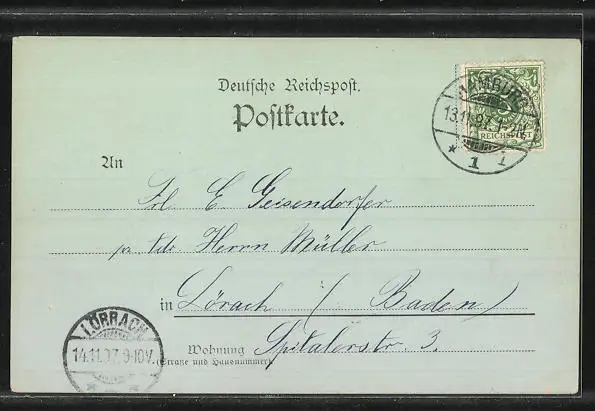 Deutsche Reichspost.
Postkarte.
HAMBURG
13.11.97. 1-2N.
* 1 i
REICHSPOST
An
Frl. E Geisendorfer
Herrn Müller
in Lörach (Baden)
Wohnung Spitalerstr. 3.
(Straße und Hausnummer)
LÖRRACH
14.11.97.9-10V.
* *